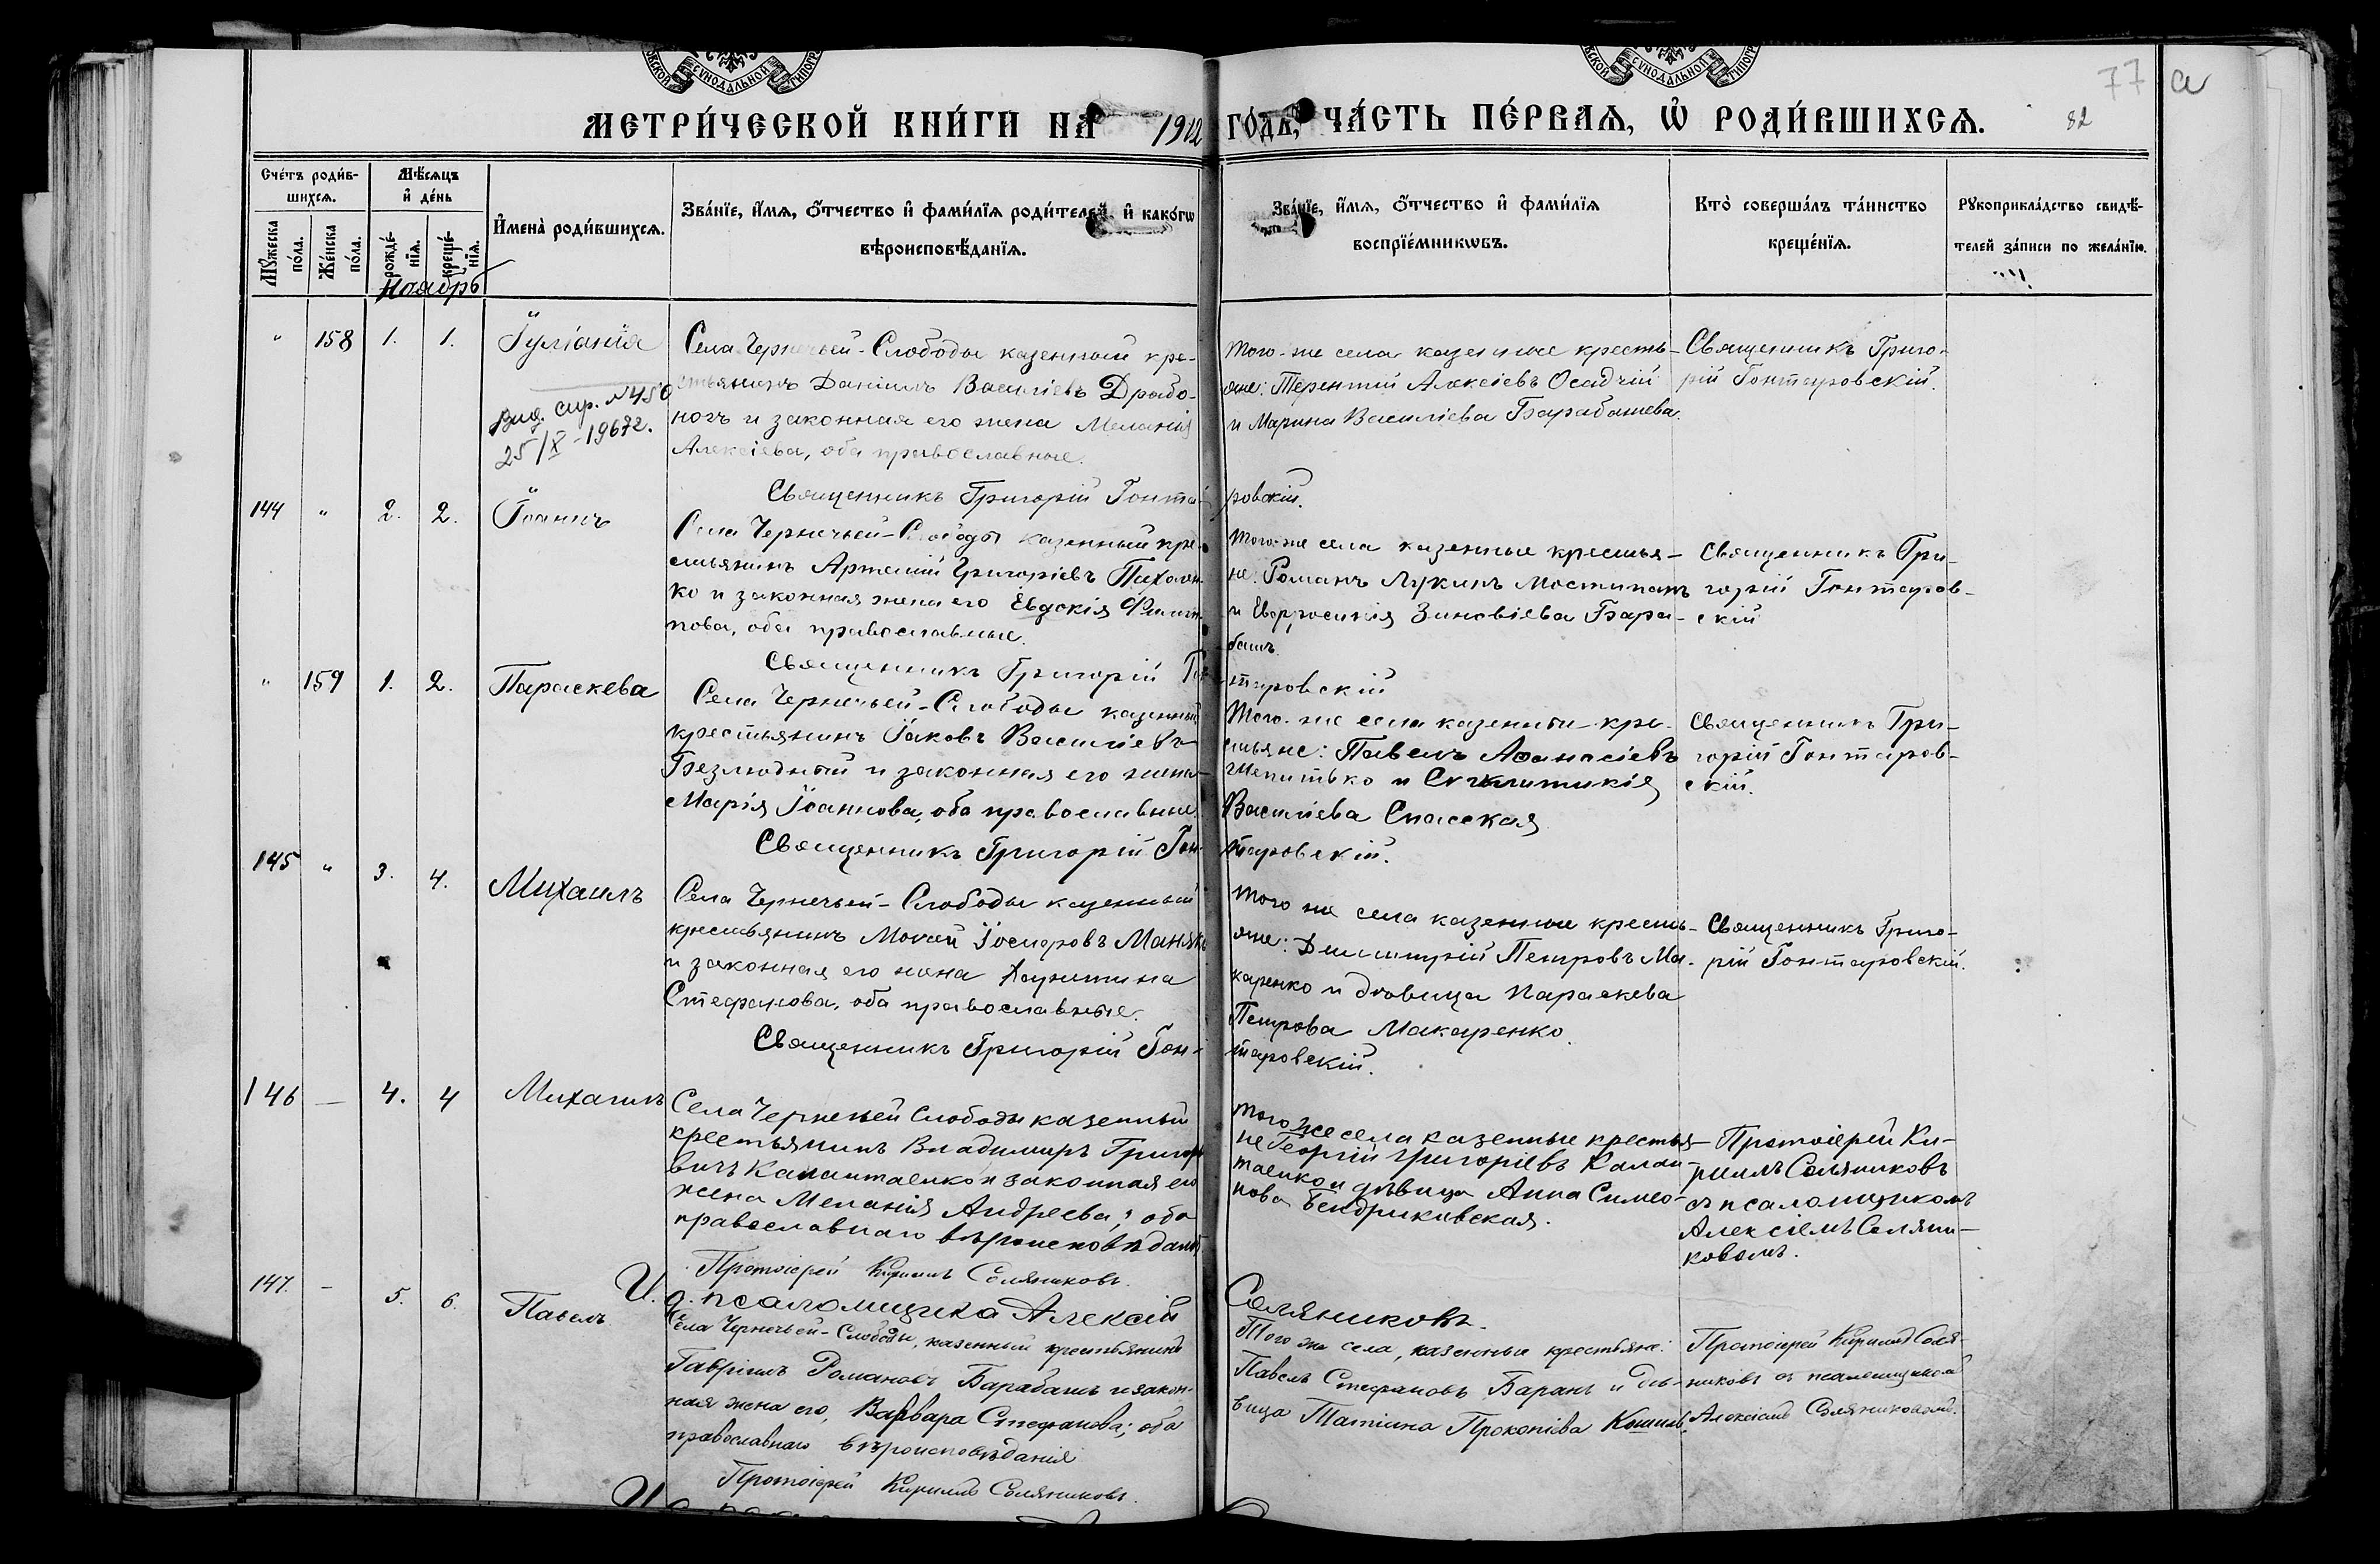 СѴНОДАЛЬНОЙ
СѴНОДАЛЬНОЙ
77 а
МЕТРИ́ЧЕСКОЙ КНИ́ГИ НА̀ 1912 ГО́ДЪ, ЧА́СТЬ ПЕ́РВАѦ, Ѽ РОДИ́ВШИХСѦ.
82
Сче́тъ роди́в-
шихсѧ.
Мꙋ́жеска
по́ла.
Же́нска
по́ла.
Мѣ́сѧцъ
и҆ де́нь
рожде́-
нїѧ.
креще́-
нїѧ.
Ноябрь
И҆мена̀ роди́вшихсѧ.
Зва́нїе, и҆́мѧ, ѻ҆́тчество и҆ фами́лїѧ роди́телей, и҆ како́гѡ
вѣроисповѣ́данїѧ.
Зва́нїе, и҆́мѧ, ѻ҆́тчество и҆ фами́лїѧ
воспрїе́мникѡвъ.
Кто̀ соверша́лъ та́инство
креще́нїѧ.
Рꙋкоприкла́дство свидѣ́-
телей за́писи по жела́нїю.
" 158 1. 1. Іуліанія
Выд. спр. №450
25/X-1967г.
Села Чернечьей-Слободы казенный кре-
стьянинъ Даніилъ Васильевъ Дробо-
ногъ и законная его жена Меланія
Алексіева, оба православные.
Того-же села казенные кресть-
яне: Терентій Алексіевъ Осадчій
и Марина Василіева Барабашева.
Священникъ Григо-
рій Гонтаровскій.
Священникъ Григорій Гонта-
ровскій.
144 " 2. 2. Іоаннъ
Села Чернечьей-Слободы казенный кре-
стьянинъ Артемій Григоріевъ Пихолен-
ко и законная жена его Евдокія Филип-
пова, оба православные.
Того-же села казенные крестья-
не: Романъ Лукинъ Мостипанъ
и Евфросинія Зиновіева Бара-
башъ.
Священникъ Гри-
горій Гонтаров-
скій
Священникъ Григорій Гон-
таровскій
" 159 1. 2. Параскева
Села Чернечьей-Слободы казенный
крестьянинъ Іаковъ Василіевъ
Безлюдный и законная его жена
Марія Іоаннова, оба православные.
Того-же села казенные кре-
стьяне: Павелъ Аѳанасіевъ
Шепитько и Сигклитикія
Василіева Спасская
Священникъ Гри-
горій Гонтаров-
скій.
Священникъ Григорій Гон-
таровскій.
145 " 3. 4. Михаилъ
Села Чернечьей-Слободы казенный
крестьянинъ Мокей
и законная его жена Харитина
Стефанова, оба православные.
Того же села казенные кресть-
яне: Димитрій Петровъ Ма-
каренко и дѣвица Параскева
Петрова Макаренко.
Священникъ Григо-
рій Гонтаровскій.
Священникъ Григорій Гон-
таровскій.
146 — 4. 4 Михаилъ
Села Чернечьей Слободы казенный
крестьянинъ Владимиръ Григорь-
вичъ Калантаенко и законная его
жена Меланія Андреева; оба
православнаго вѣроисповѣданія
Того же села казенные крестья-
не Георгій Григоріевъ Калан-
таенко и дѣвица Анна Симео-
нова Бендриковская.
Протоіерей Ки-
риллъ Соляниковъ
съ псаломщикомъ
Алексіемъ Соляни-
ковымъ.
Протоіерей Кириллъ Соляниковъ.
И. д. псаломщика Алексій Соляниковъ.
147. — 5. 6. Павелъ
Села Чернечьей-Слободы, казенный крестьянинъ
Гавріилъ Романовъ Барабашъ и закон-
ная жена его, Варвара Стефанова; оба
православнаго вѣроисповѣданія
Того же села, казенные крестьяне:
Павелъ Стефановъ Баранъ и дѣ-
вица Татіана Прокопіева Кошиль.
Протоіерей Кириллъ Соля-
никовъ съ псаломщикомъ
Алексіемъ Соляниковымъ.
Протоіерей Кириллъ Соляниковъ.